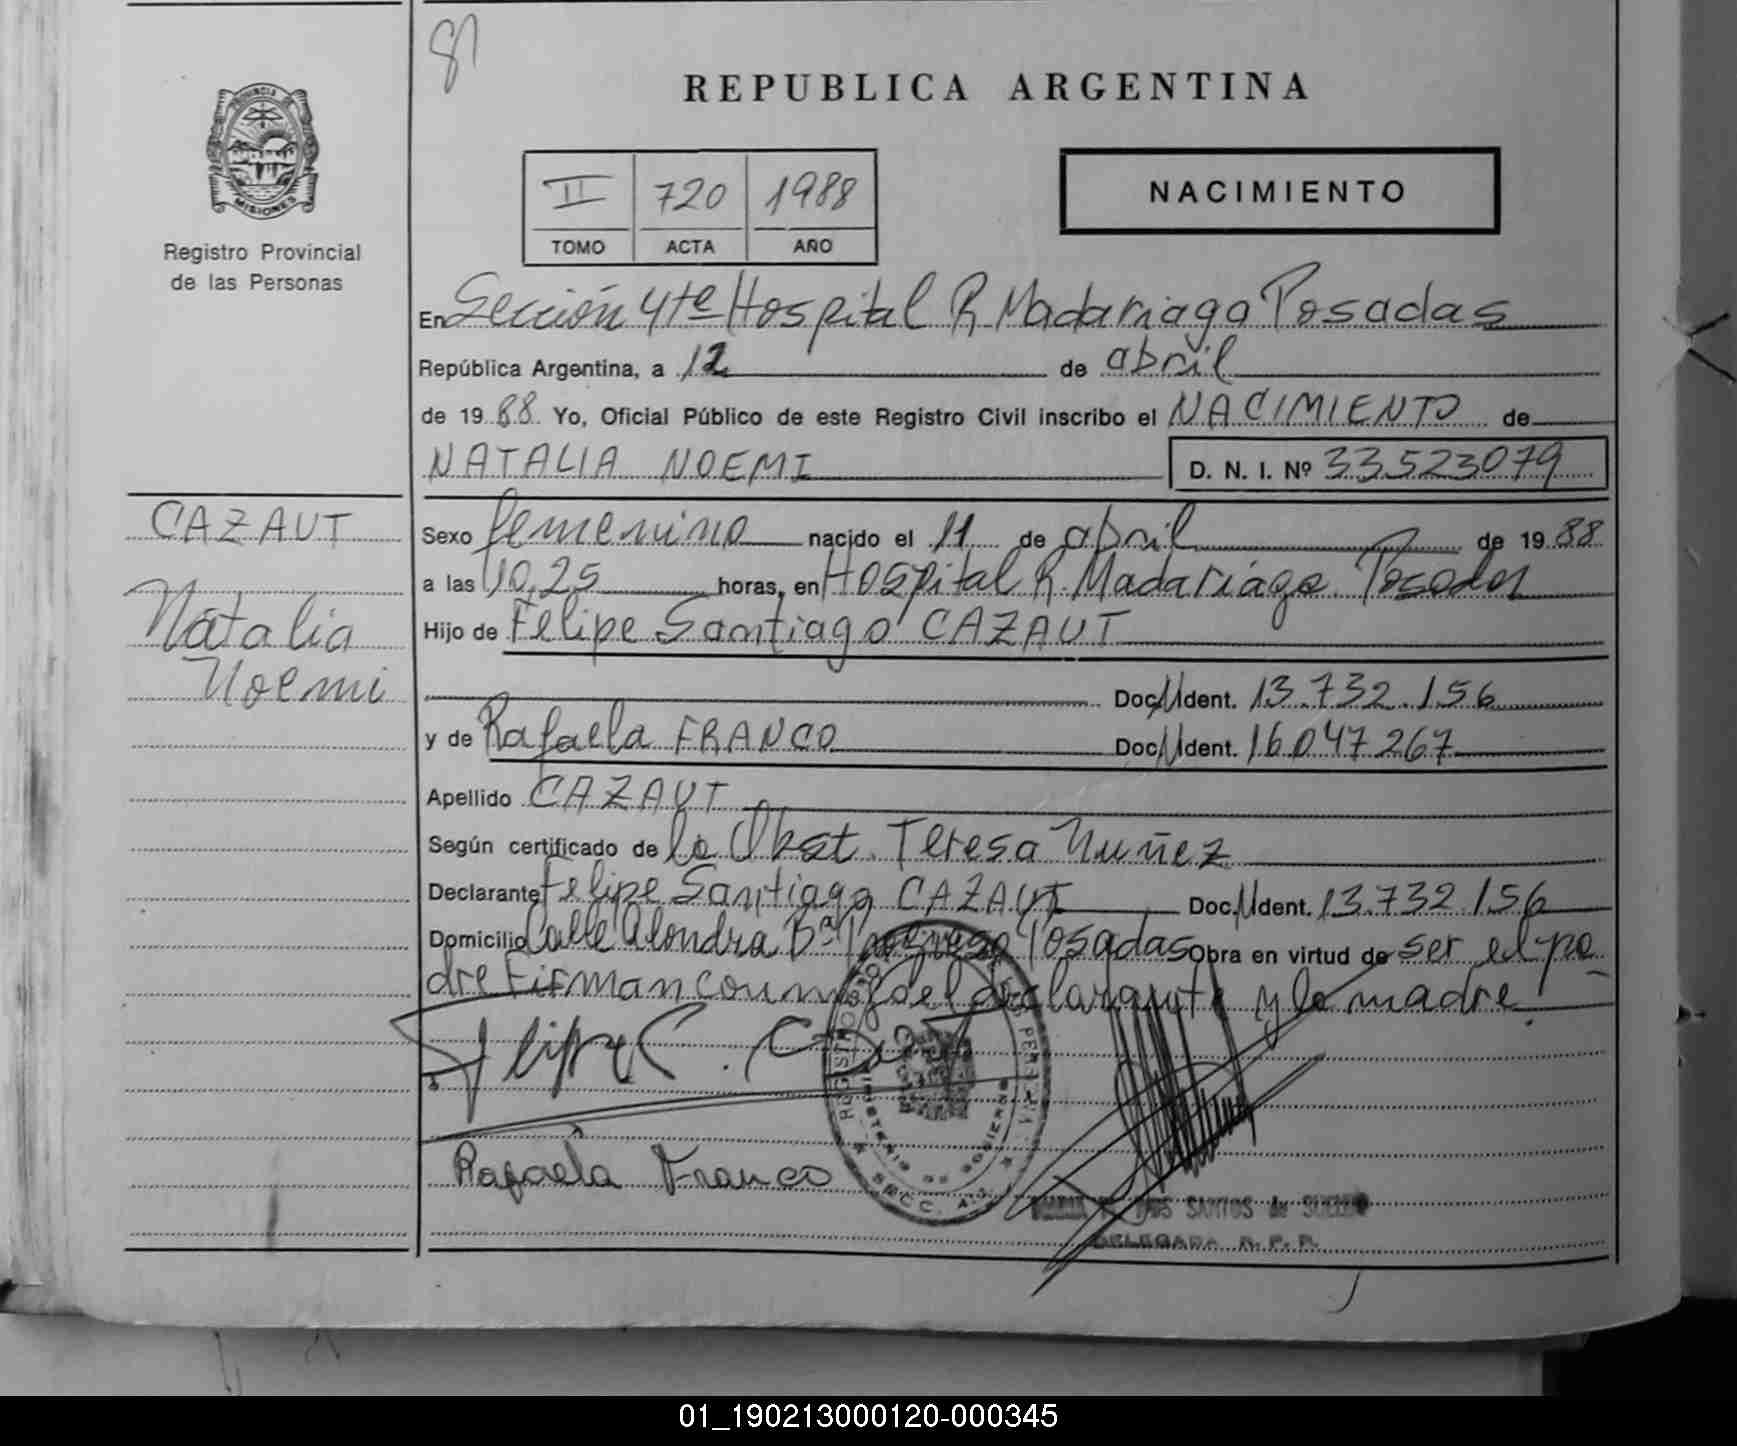 87
REPUBLICA ARGENTINA
PROVINCIA DE
MISIONES
Registro Provincial
de las Personas
II 720 1988
TOMO ACTA AÑO
NACIMIENTO
En Sección 4ta Hospital R Madariaga Posadas
República Argentina, a 12 de abril
de 19 88 Yo, Oficial Público de este Registro Civil inscribo el NACIMIENTO de
NATALIA NOEMI D. N. I. Nº 33523079
CAZAUT
Natalia
Noemi
Sexo femenino nacido el 11 de abril de 19 88
a las 10,25 horas, en Hospital R. Madariaga Posadas
Hijo de Felipe Santiago CAZAUT
Doc. Ident. 13.732.156
y de Rafaela FRANCO Doc. Ident. 16.047267
Apellido CAZAUT
Según certificado de la Obst. Teresa Nuñez
Declarante Felipe Santiago CAZAUT Doc. Ident. 13.732.156
Domicilio Calle Alondra Bº Posadas Obra en virtud de ser el pa
dre Firman conmigo el declarante y la madre.
Felipe
Rafaela Franco
DOS SANTOS de
DELEGADA R. P. P.
01_190213000120-000345